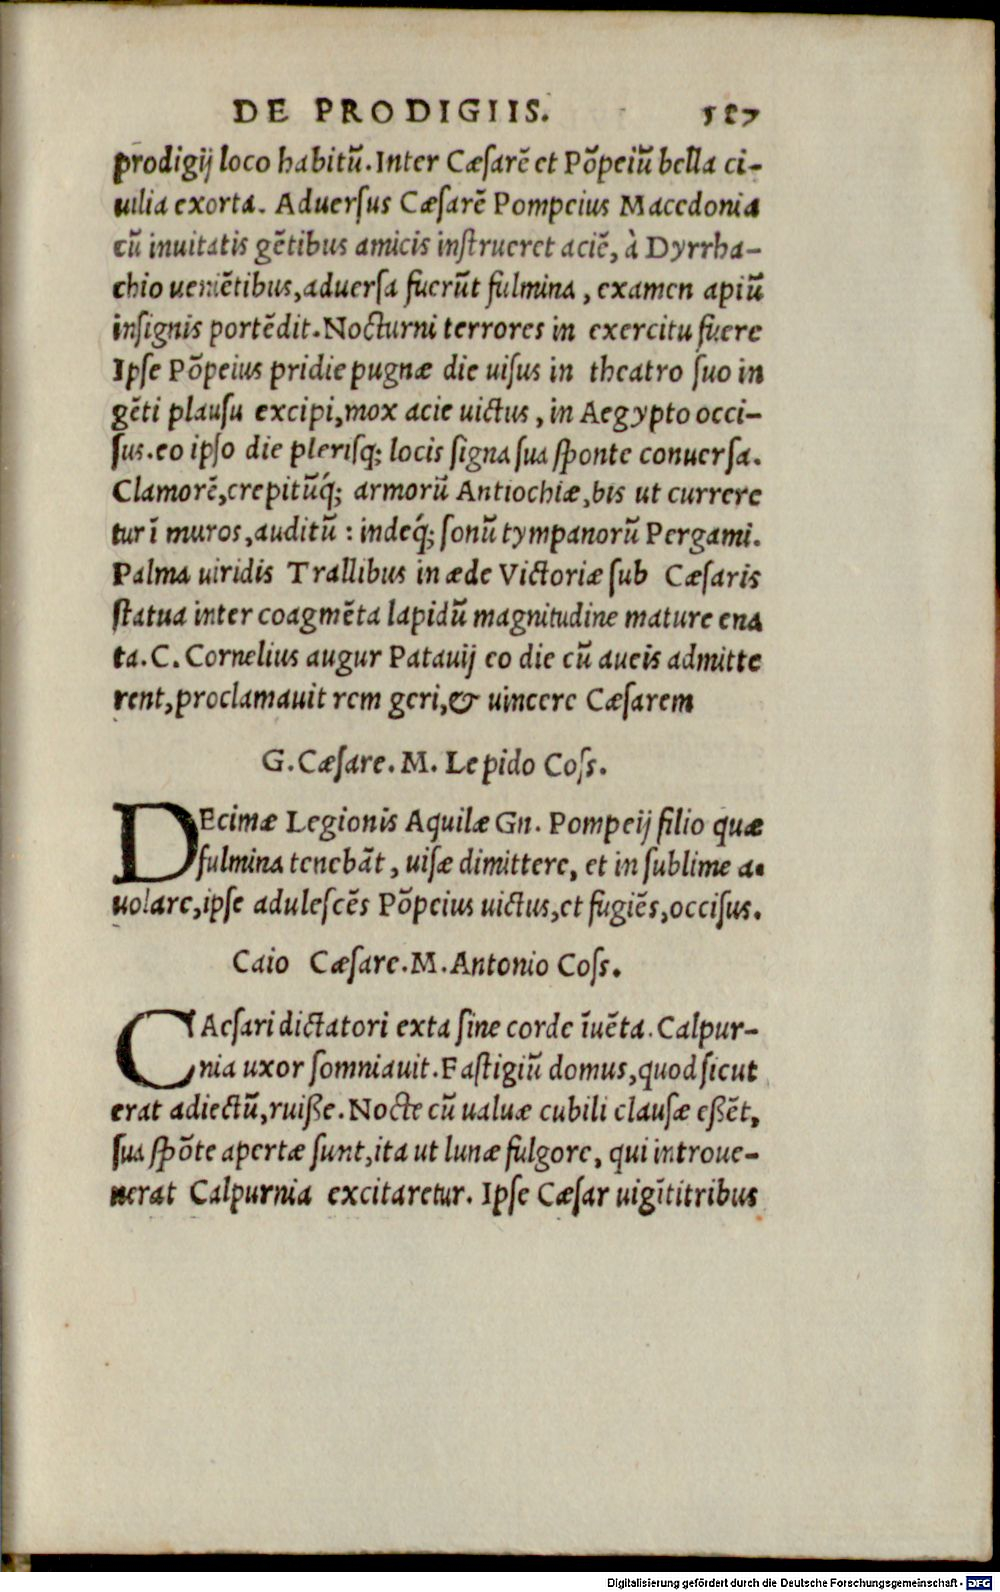 DE PRODIGIIS. 527
prodigij loco habitũ. Inter Cæsarẽ et Põpeiũ bella ci-
uilia exorta. Aduersus Cæsarẽ Pompeius Macedonia
cũ inuitatis gẽtibus amicis instrueret aciẽ, à Dyrrha-
chio ueniẽtibus, aduersa fuerũt fulmina, examen apiũ
insignis portẽdit. Nocturni terrores in exercitu fuere
Ipse Põpeius pridie pugnæ die uisus in theatro suo in
gẽti plausu excipi, mox acie uictus, in Aegypto occi-
sus. eo ipso die plerisq; locis signa sua sponte conuersa.
Clamorẽ, crepitũq́; armorũ Antiochiæ, bis ut currere
tur ĩ muros, auditũ : indeq́; sonũ tympanorũ Pergami.
Palma uiridis Trallibus in æde Victoriæ sub Cæsaris
statua inter coagmẽta lapidũ magnitudine mature ena
ta. C. Cornelius augur Patauij eo die cũ aueis admitte
rent, proclamauit rem geri, & uincere Cæsarem
G. Cæsare. M. Lepido Coss.
DEcimæ Legionis Aquilæ Gn. Pompeij filio quæ
fulmina tenebãt, uisæ dimittere, et in sublime a-
uolare, ipse adulescẽs Põpeius uictus, et fugiẽs, occisus.
Caio Cæsare. M. Antonio Coss.
CAesari dictatori exta sine corde ĩuẽta. Calpur-
nia uxor somniauit. Fastigiũ domus, quod sicut
erat adiectũ, ruiße. Nocte cũ ualuæ cubili clausæ eßẽt,
sua spõte apertæ sunt, ita ut lunæ fulgore, qui introue-
nerat Calpurnia excitaretur. Ipse Cæsar uigĩtitribus
Digitalisierung gefördert durch die Deutsche Forschungsgemeinschaft - DFG